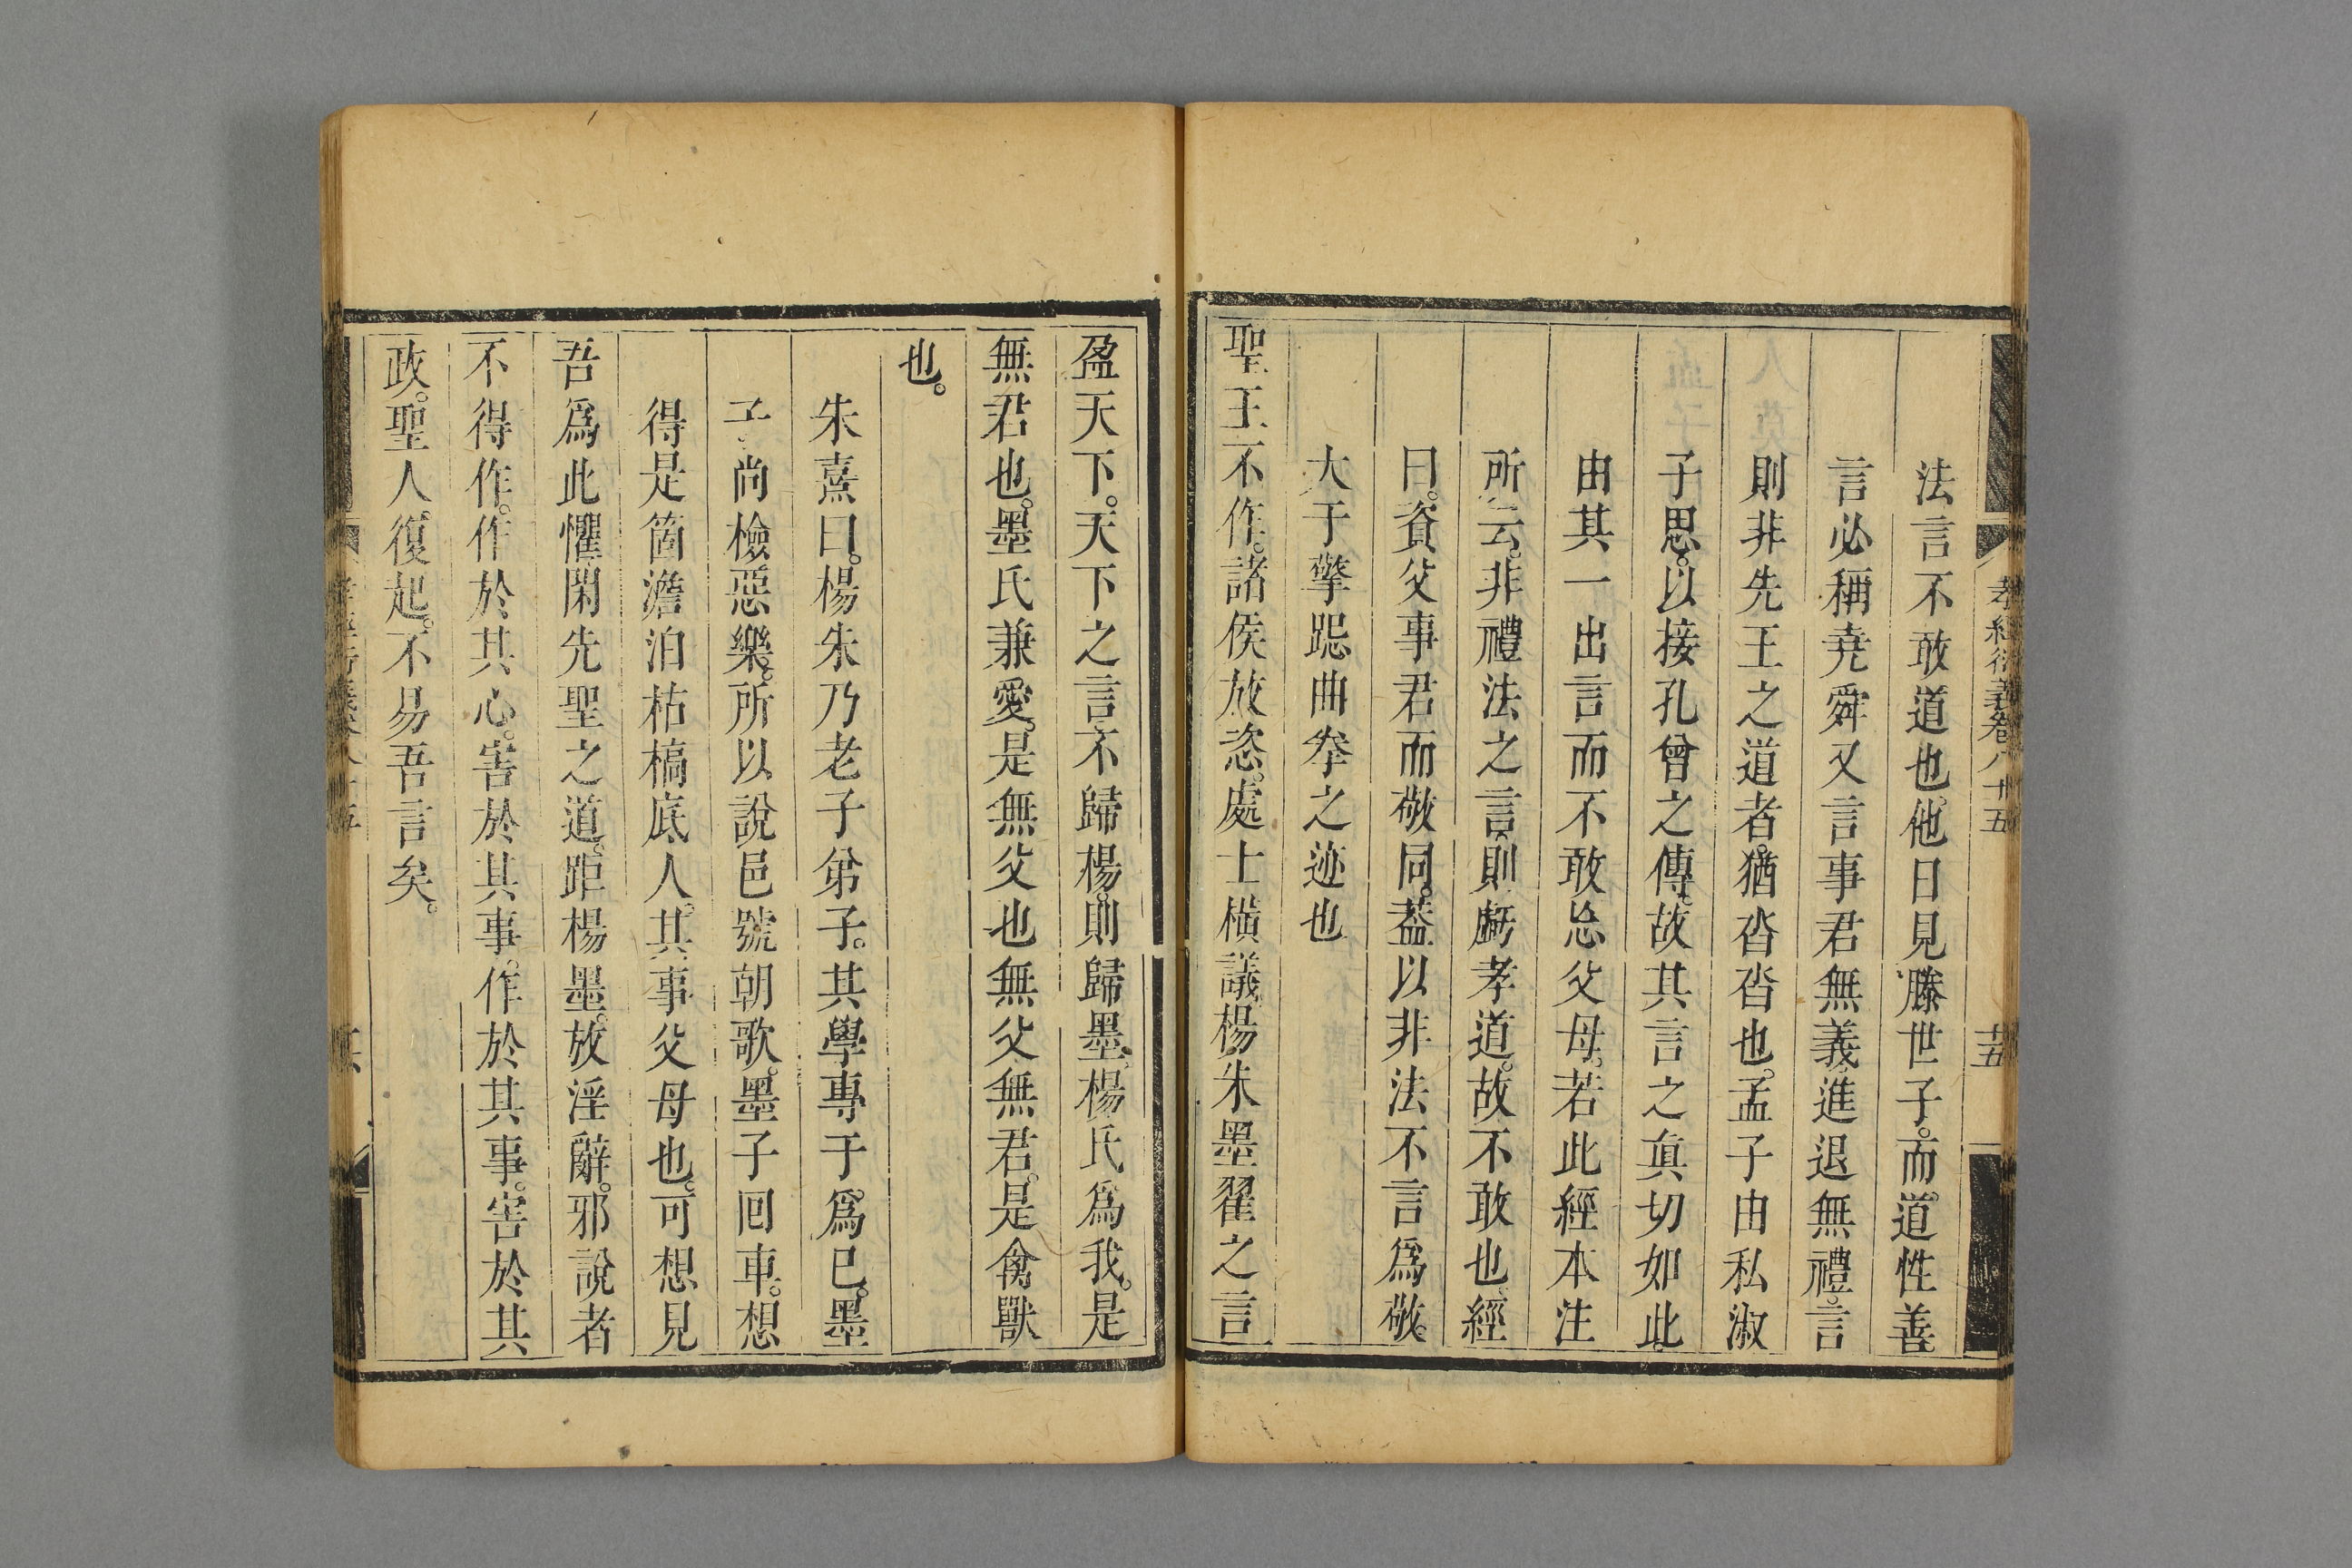 孝經衍義卷八十五
十五
法言不敢道也。他日見滕世子。而道性善
言必稱堯舜又言事君無義。進退無禮。言
則非先王之道者。猶沓沓也。孟子由私淑
子思。以接孔曾之傳。故其言之眞切如此。
由其一出言而不敢忘父母。若此經本注
所云。非禮法之言。則虧孝道。故不敢也。經
曰。資父事君而敬同。葢以非法不言爲敬。
大于擎跽曲拳之迹也
聖王不作。諸侯放恣。處士橫議。楊朱墨翟之言
盈天下。天下之言不歸楊。則歸墨。楊氏爲我。是
無君也。墨氏兼愛。是無父也無父無君。是禽獸
也。
朱熹曰。楊朱乃老子弟子。其學專于爲已。墨
子尚檢惡樂。所以說邑號朝歌。墨子回車。想
得是箇澹泊枯槁底人。其事父母也。可想見
吾爲此懼閑先聖之道。距楊墨。放淫辭。邪說者
不得作。作於其心。害於其事。作於其事。害於其
政。聖人復起。不易吾言矣。